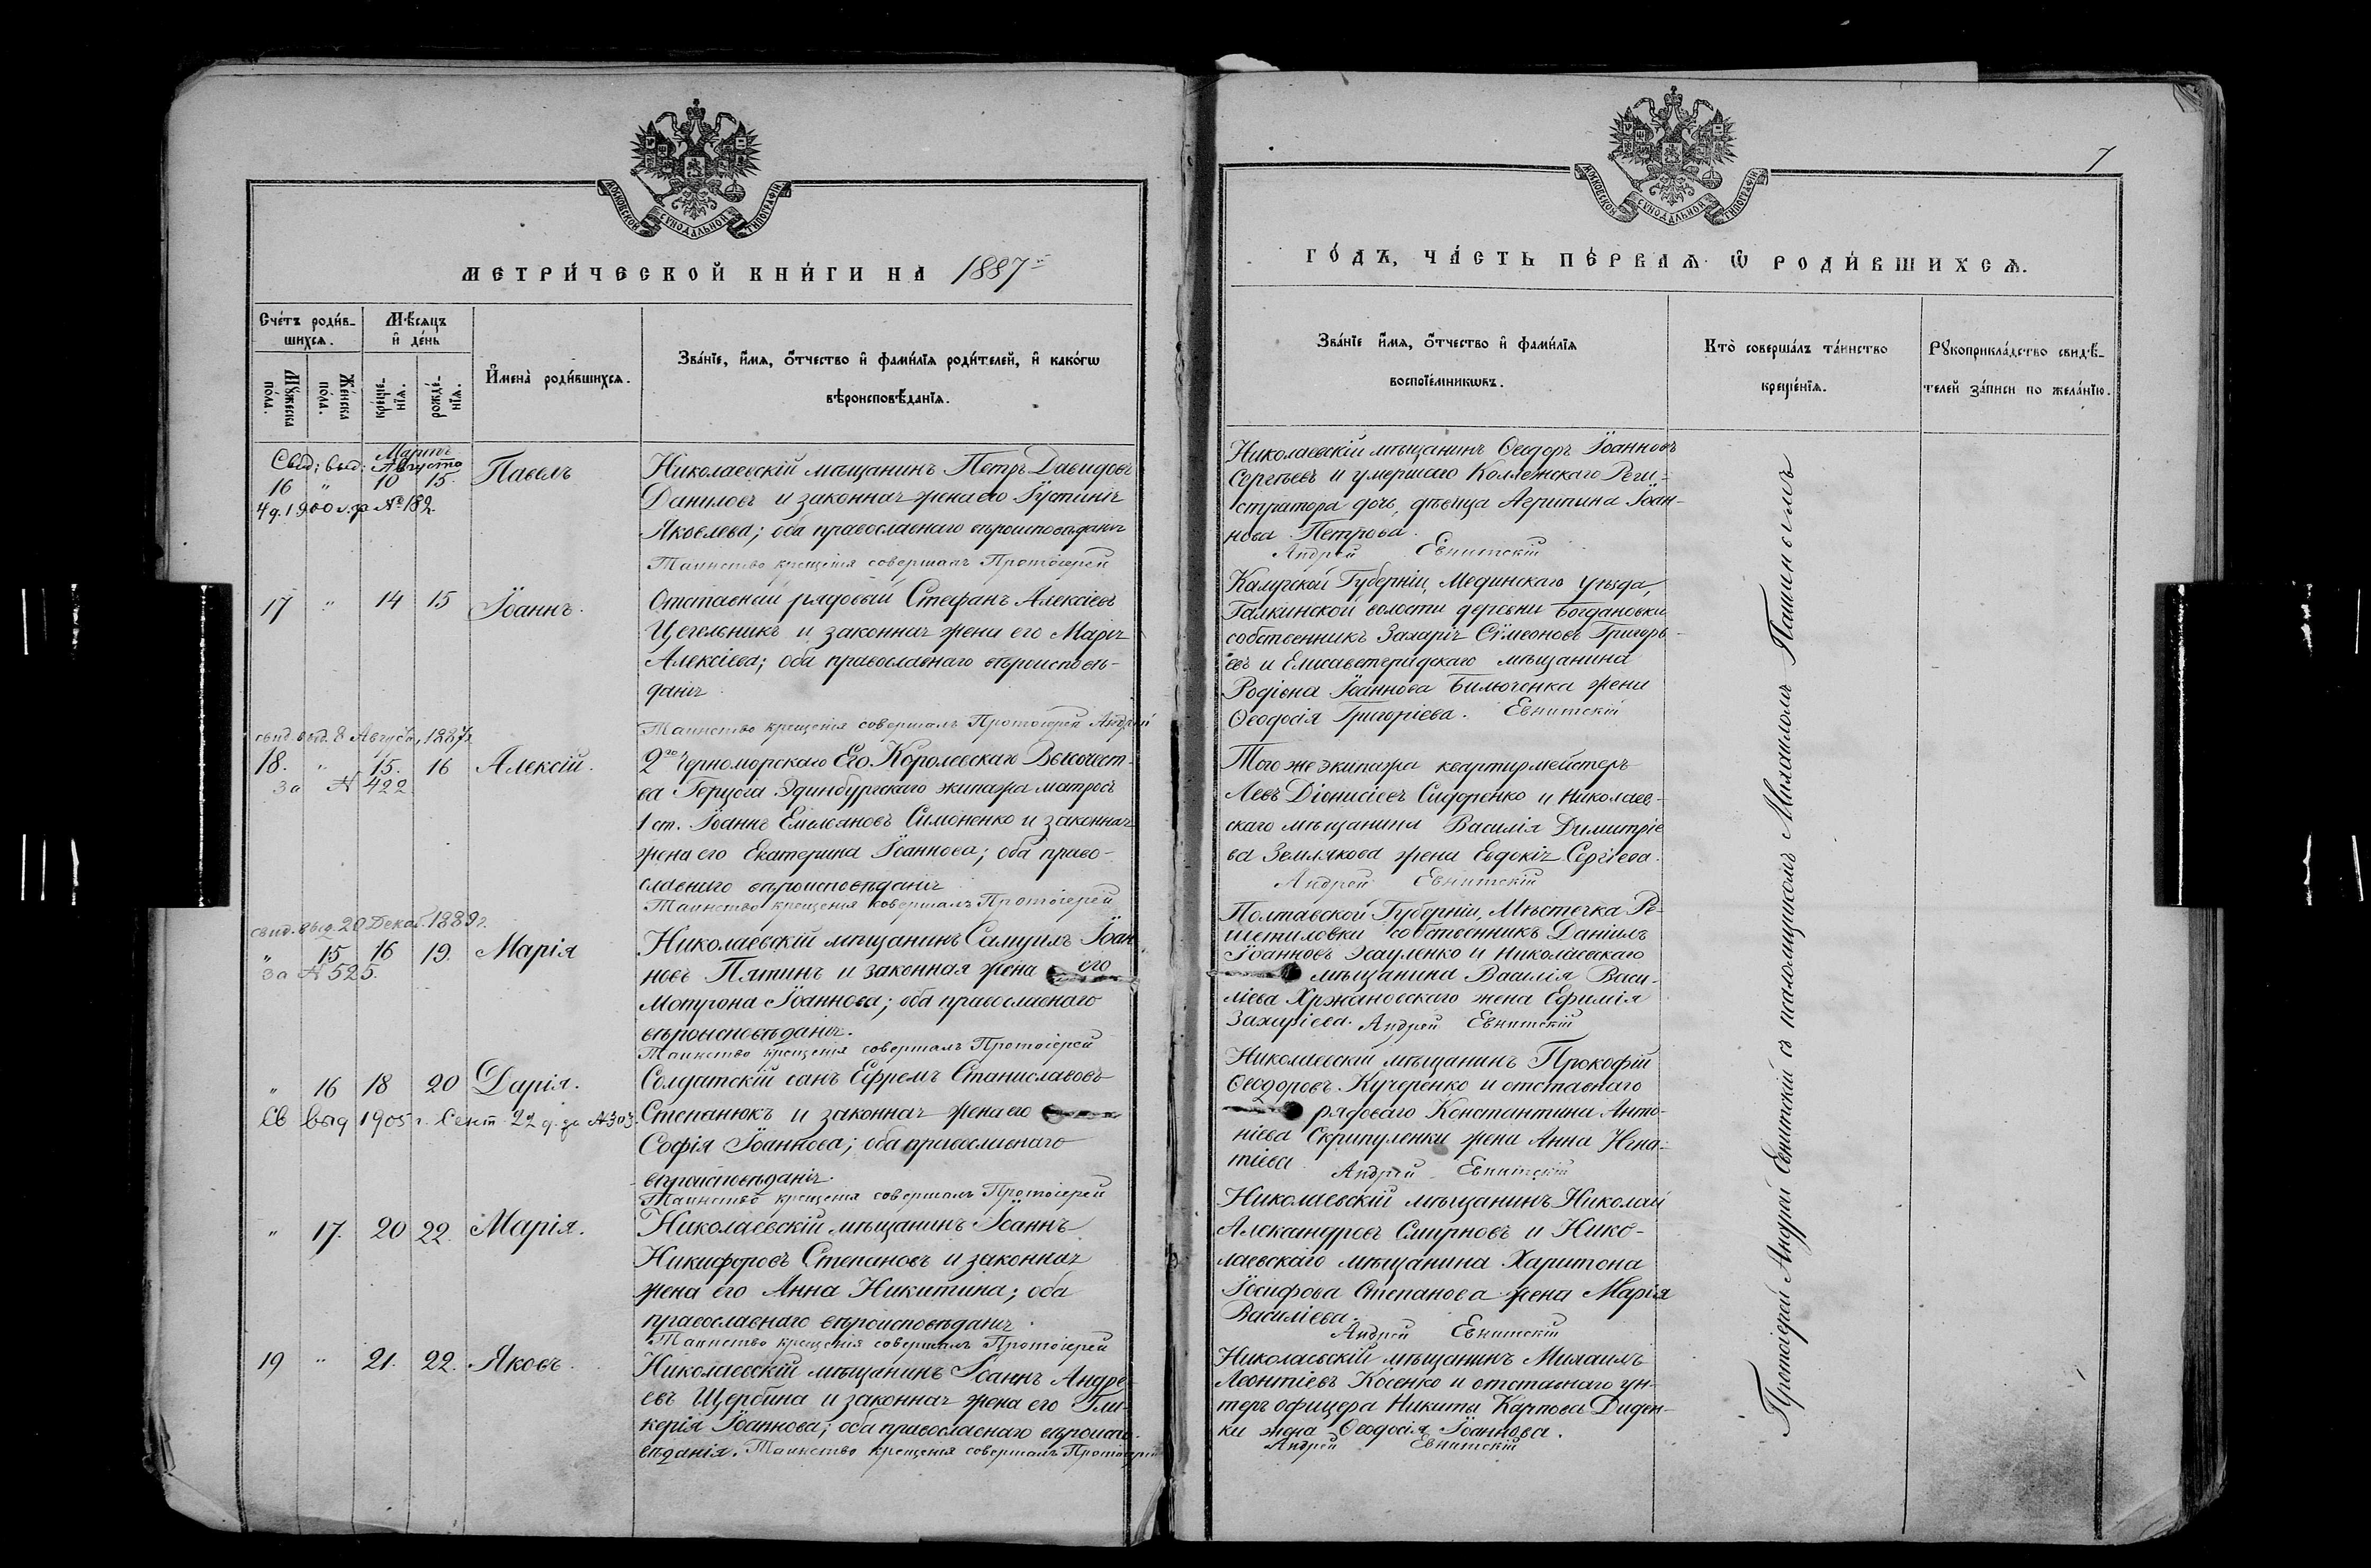 МОСКОВСКОЙ СѴНОДАЛЬНОЙ ТИПОГРАФІИ
МЕТРИ́ЧЕСКОЙ КНИ́ГИ НА 1887й
Сче́тъ роди́в-
шихсѧ.
Мѣ́сѧцъ
и҆ де́нь
Мꙋ́жеска
по́ла.
Же́нска
по́ла.
креще́-
нїѧ.
рожде́-
нїѧ.
И҆мена̀ роди́вшихсѧ.
Зва́нїе, и҆́мѧ, ѻ҆́тчество и҆ фами́лїѧ роди́телей, и҆ како́гѡ
вѣроисповѣ́данїѧ.
Мартъ
Свид; выд; Августа
16 " 10 15. Павелъ
4 д. 1900 г. за № 182.
Николаевскій мѣщанинъ Петръ Давидовъ
Даниловъ и законная жена его Іустинія
Яковлева; оба православнаго вѣроисповѣданія
Таинство крещенія совершалъ Протоіерей
17 " 14 15 Іоаннъ.
Отставный рядовый Стефанъ Алексіевъ
Цегельникъ и законная жена его Марія
Алексіева; оба православнаго вѣроисповѣ-
данія
Таинство крещенія совершалъ Протоіерей Андрей
свид. выд. 8 Августа, 1887г.
18. " 15. 16 Алексій.
за № 422
2го Черноморскаго Его Королевскаго Высочест-
ва Герцога Эдинбургскаго экипажа матросъ
1 ст. Іоаннъ Емельяновъ Симоненко и законная
жена его Екатерина Іоаннова; оба право-
славнаго вѣроисповѣданія
Таинство крещенія совершалъ Протоіерей
свид. выд. 20 Декаб. 1889г.
" 15 16 19. Марія
за № 525.
Николаевскій мѣщанинъ Самуилъ Іоан-
новъ Пятинъ и законная жена его
Мотрона Іоаннова; оба православнаго
вѣроисповѣданія.
Таинство крещенія совершалъ Протоіерей
" 16 18 20 Дарія.
Св выд 1905 г. Сент 22 д. за № 303.
Солдатскій сынъ Ефремъ Станиславовъ
Степанюкъ и законная жена его
Софія Іоаннова; оба православнаго
вѣроисповѣданія.
Таинство крещенія совершалъ Протоіерей
" 17. 20 22. Марія.
Николаевскій мѣщанинъ Іоаннъ
Никифоровъ Степановъ и законная
жена его Анна Никитина; оба
православнаго вѣроисповѣданія.
Таинство крещенія совершалъ Протоіерей
19 " 21. 22. Яковъ.
Николаевскій мѣщанинъ Іоаннъ Андре-
евъ Щербина и законная жена его Гли-
керія Іоаннова; оба православнаго вѣроиспо-
вѣданія. Таинство крещенія совершалъ Протоіерей
МОСКОВСКОЙ СѴНОДАЛЬНОЙ ТИПОГРАФІИ
7
ГО́ДЪ, ЧА́СТЬ ПЕ́РВАѦ Ѡ҆ РОДИ́ВШИХСѦ.
Зва́нїе и҆́мѧ, ѻ҆́тчество и҆ фами́лїѧ
воспрїе́мникѡвъ.
Кто̀ соверша́лъ та́инство
креще́нїѧ.
Рꙋкоприкла́дство свидѣ́-
телей за́писи по жела́нїю.
Николаевскій мѣщанинъ Ѳеодоръ Іоанновъ
Сергѣевъ и умершаго Коллежскаго Реги-
стратора дочь, дѣвица Агрипина Іоан-
нова Петрова.
Андрей Евнитскій
Калужской Губерніи, Мединскаго уѣзда,
Галкинской волости деревни Богдановки
собственникъ Захарія Сѵмеоновъ Григорь-
евъ и Елисаветградскаго мѣщанина
Родіона Іоаннова Билюченка жена
Ѳеодосія Григоріева. Евнитскій
Того же экипажа квартирмейстеръ
Левъ Діонисіевъ Сидоренко и Николаев-
скаго мѣщанина Василія Димитріе
ва Землякова жена Евдокія Сергіева.
Андрей Евнитскій
Полтавской Губерніи, Мѣстечка Ре-
шетиловки собственникъ Даніилъ
Іоанновъ Эсауленко и Николаевскаго
мѣщанина Василія Васи-
ліева Хржановскаго жена Ефимія
Захаріева. Андрей Евнитскій
Николаевскій мѣщанинъ Прокофій
Ѳеодоровъ Кучеренко и отставнаго
рядоваго Константина Анто-
ніева Скрипуленки жена Анна Игна-
тіева. Андрей Евнитскій
Николаевскій мѣщанинъ Николай
Александровъ Смирновъ и Нико-
лаевскаго мѣщанина Харитона
Іосифова Степанова жена Марія
Василіева.
Андрей Евнитскій
Николаевскій мѣщанинъ Михаилъ
Леонтіевъ Косенко и отставнаго ун-
теръ офицера Никиты Карпова Диден-
ки жена Ѳеодосія Іоаннова.
Андрей Евнитскій
Протоіерей Андрей Евнитскій съ псаломщикомъ Михаиломъ